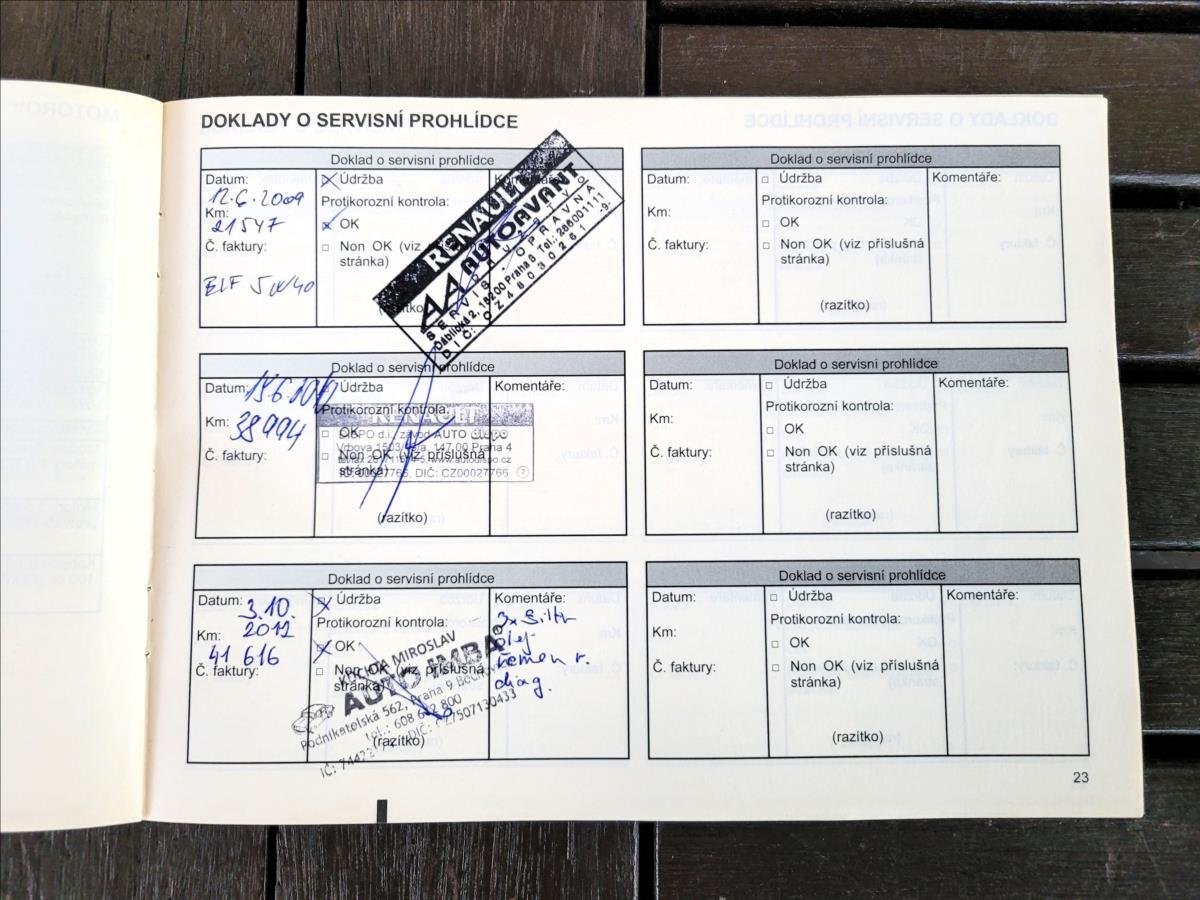 DOKLADY O SERVISNÍ PROHLÍDCE
Doklad o servisní prohlídce
Datum:
12.6.2009
Km:
21547
Č. faktury:
ELF 5W40
Údržba
Protikorozní kontrola:
OK
Non OK (viz příslušná
stránka)
(razítko)
Komentáře:
RENAULT
AUTOAVANT
SERVIS, OPRAVNA
Ďáblická 2, 18200 Praha 8 Tel.: 286001111
DIČ: CZ48030261 -9-
Doklad o servisní prohlídce
Datum: 15.6.2010
Km: 38994
Č. faktury:
Údržba
Protikorozní kontrola:
OK
Non OK (viz příslušná
stránka)
(razítko)
Komentáře:
RENAULT
DISPO d.i., závod AUTO DISPO
147 00 Praha 4
www.autodispo.cz
IČ: 00027766, DIČ: CZ00027766 7
Doklad o servisní prohlídce
Datum: 3.10.
2012
Km:
41 616
Č. faktury:
Údržba
Protikorozní kontrola:
OK
Non OK (viz příslušná
stránka)
(razítko)
Komentáře:
3x filtr
olej
řemen r.
diag.
MIROSLAV
AUTO IMBA
Podnikatelská 562, Praha 9 Běchovice
tel.: 608 800
Doklad o servisní prohlídce
Datum:
Km:
Č. faktury:
Údržba
Protikorozní kontrola:
OK
Non OK (viz příslušná
stránka)
(razítko)
Komentáře:
Doklad o servisní prohlídce
Datum:
Km:
Č. faktury:
Údržba
Protikorozní kontrola:
OK
Non OK (viz příslušná
stránka)
(razítko)
Komentáře:
Doklad o servisní prohlídce
Datum:
Km:
Č. faktury:
Údržba
Protikorozní kontrola:
OK
Non OK (viz příslušná
stránka)
(razítko)
Komentáře:
23